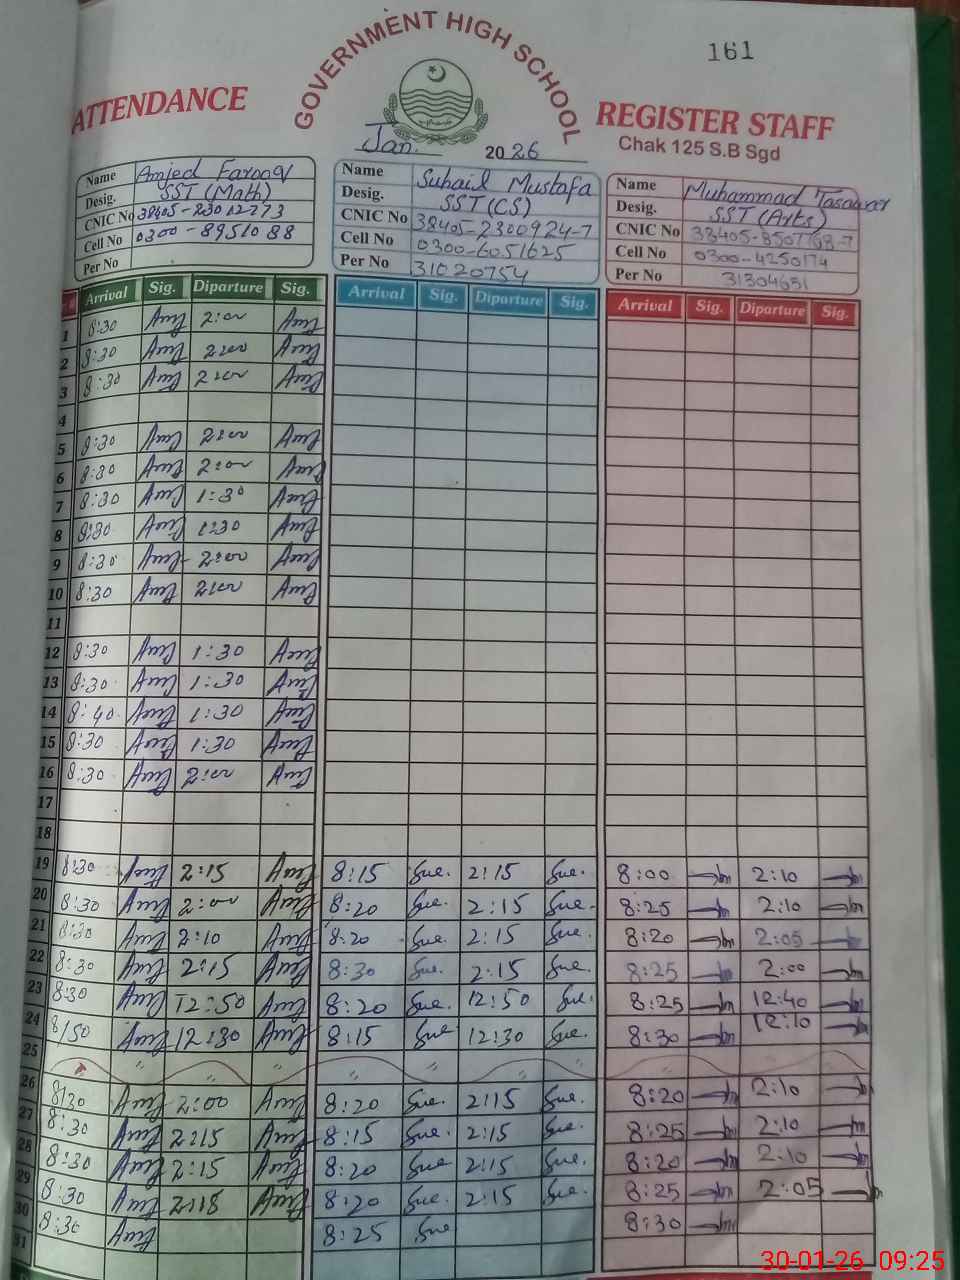 161
GOVERNMENT HIGH SCHOOL
ATTENDANCE
REGISTER STAFF
Chak 125 S.B Sgd
Jan. 2026
Name Amjed Farooq
Desig. SST (Math)
CNIC No
Cell No 0300-8951088
Per No
Name Suhail Mustafa
Desig. SST (CS)
CNIC No 38405-2300924-7
Cell No 0300-6051625
Per No 31020754
Name Muhammad Tasawer
Desig. SST (Arts)
CNIC No
Cell No 0300-4250174
Per No 31304651
Arrival Sig. Diparture Sig. Arrival Sig. Diparture Sig. Arrival Sig. Diparture Sig.
1 8:30 2:00
2 8:30 2:00
3 8:30 2:00
4
5 8:30 2:00
6 8:30 2:00
7 8:30 1:30
8 8:30 1:30
9 8:30 2:00
10 8:30 2:00
11
12 8:30 1:30
13 8:30 1:30
14 8:40 1:30
15 8:30 1:30
16 8:30 2:00
17
18
19 8:30 2:15 8:15 Sue. 2:15 Sue. 8:00 2:10
20 8:30 2:00 8:20 Sue. 2:15 Sue. 8:25 2:10
21 8:30 2:10 8:20 Sue. 2:15 Sue. 8:20 2:05
22 8:30 2:15 8:30 Sue. 2:15 Sue. 8:25 2:00
23 8:30 12:50 8:20 Sue. 12:50 Sue. 8:25 12:40
24 8/50 12:30 8:15 Sue 12:30 Sue. 8:30 12:10
25 " " " " " " "
26 8:30 2:00 8:20 Sue. 2:15 Sue. 8:20 2:10
27 8:30 2:15 8:15 Sue. 2:15 Sue. 8:25 2:10
28 8:30 2:15 8:20 Sue 2:15 Sue. 8:20 2:10
29 8:30 2:18 8:20 Sue. 2:15 Sue. 8:25 2:05
30 8:30 8:25 Sue 8:30
31
30-01-26 09:25